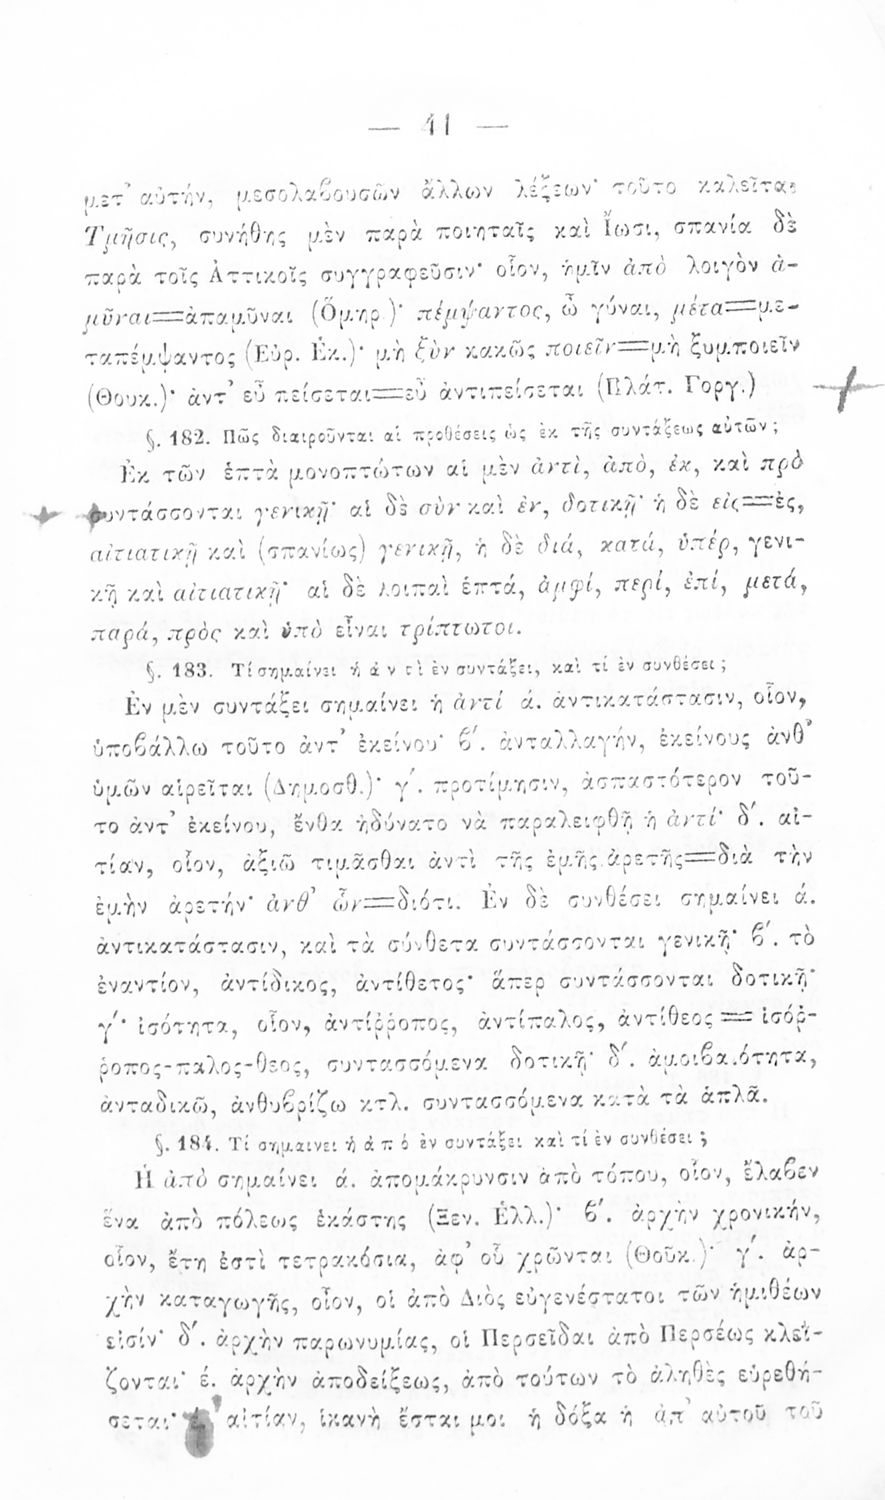 — 41 —
μετ' αὐτήν, μεσολαβουσῶν ἄλλων λέξεων· τοῦτο καλεῖται
Τμῆσις, συνήθης μὲν παρὰ ποιηταῖς καὶ Ἴωσι, σπανία δὲ
παρὰ τοῖς Ἀττικοῖς συγγραφεῦσιν· οἷον, ἡμῖν ἀπὸ λοιγὸν ἀ-
μῦναι=ἀπαμῦναι (Ὅμηρ.)· πέμψαντος, ὦ γύναι, μέτα=με-
ταπέμψαντος (Εὐρ. Ἑκ.)· μὴ ξὺν κακῶς ποιεῖν=μὴ ξυμποιεῖν
(Θουκ.)· ἀντ' εὖ πείσεται=εὖ ἀντιπείσεται (Πλάτ. Γοργ.)
§. 182. Πῶς διαιροῦνται αἱ προθέσεις ὡς ἐκ τῆς συντάξεως αὐτῶν;
Ἐκ τῶν ἑπτὰ μονοπτώτων αἱ μὲν ἀντὶ, ἀπὸ, ἐκ, καὶ πρὸ
συντάσσονται γενικῇ· αἱ δὲ σὺν καὶ ἐν, δοτικῇ· ἡ δὲ εἰς=ἐς,
αἰτιατικῇ καὶ (σπανίως) γενικῇ, ἡ δὲ διά, κατά, ὑπέρ, γενι-
κῇ καὶ αἰτιατικῇ· αἱ δὲ λοιπαὶ ἑπτά, ἀμφί, περί, ἐπί, μετά,
παρά, πρὸς καὶ ὑπὸ εἶναι τρίπτωτοι.
§. 183. Τί σημαίνει ἡ ἀντὶ ἐν συντάξει, καὶ τί ἐν συνθέσει;
Ἐν μὲν συντάξει σημαίνει ἡ ἀντί ά. ἀντικατάστασιν, οἷον,
ὑποβάλλω τοῦτο ἀντ' ἐκείνου· β'. ἀνταλλαγήν, ἐκείνους ἀνθ'
ὑμῶν αἱρεῖται (Δημοσθ.)· γ'. προτίμησιν, ἀσπαστότερον τοῦ-
το ἀντ' ἐκείνου, ἔνθα ἠδύνατο νὰ παραλειφθῇ ἡ ἀντί· δ'. αἰ-
τίαν, οἷον, ἀξιῶ τιμᾶσθαι ἀντὶ τῆς ἐμῆς ἀρετῆς=διὰ τὴν
ἐμὴν ἀρετήν· ἀνθ' ὧν=διότι. Ἐν δὲ συνθέσει σημαίνει ά.
ἀντικατάστασιν, καὶ τὰ σύνθετα συντάσσονται γενικῇ· β'. τὸ
ἐναντίον, ἀντίδικος, ἀντίθετος· ἅπερ συντάσσονται δοτικῇ·
γ'· ἰσότητα, οἷον, ἀντίῤῥοπος, ἀντίπαλος, ἀντίθεος = ἰσόῤ-
ῥοπος-παλος-θεος, συντασσόμενα δοτικῇ· δ'. ἀμοιβαιότητα,
ἀνταδικῶ, ἀνθυβρίζω κτλ. συντασσόμενα κατὰ τὰ ἁπλᾶ.
§. 184. Τί σημαινει ἡ ἀπό ἐν συντάξει καὶ τί ἐν συνθέσει;
Ἡ ἀπὸ σημαίνει ά. ἀπομάκρυνσιν ἀπὸ τόπου, οἷον, ἔλαβεν
ἕνα ἀπὸ πόλεως ἑκάστης (Ξεν. Ἑλλ.)· β'. ἀρχὴν χρονικήν,
οἷον, ἔτη ἐστὶ τετρακόσια, ἀφ' οὗ χρῶνται (Θοῦκ.)· γ'. ἀρ-
χὴν καταγωγῆς, οἷον, οἱ ἀπὸ Διὸς εὐγενέστατοι τῶν ἡμιθέων
εἰσίν· δ'. ἀρχὴν παρωνυμίας, οἱ Περσεῖδαι ἀπὸ Περσέως κλεΐ-
ζονται· έ. ἀρχὴν ἀποδείξεως, ἀπὸ τούτων τὸ ἀληθὲς εὑρεθή-
σεται· αἰτίαν, ἱκανὴ ἔσται μοι ἡ δόξα ἡ ἀπ' αὐτοῦ τοῦ